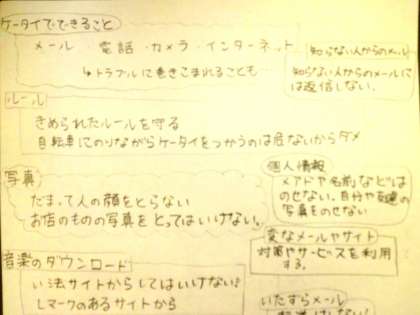 ケータイでできること
メール 電話・カメラ・インターネット
↳トラブルにまきこまれることも
知らない人からのメール
知らない人からのメールには返信しない。
ルール
きめられたルールを守る
自転車にのりながらケータイをつかうのは危ないからダメ
写真
だまって人の顔をとらない
お店のものの写真をとってはいけない。
個人情報
メアドや名前などは
のせない。自分や友達の
写真をのせない
変なメールやサイト
対策やサービスを利用
する。
音楽のダウンロード
い法サイトからしてはいけない!
Lマークのあるサイトから
いたずらメール